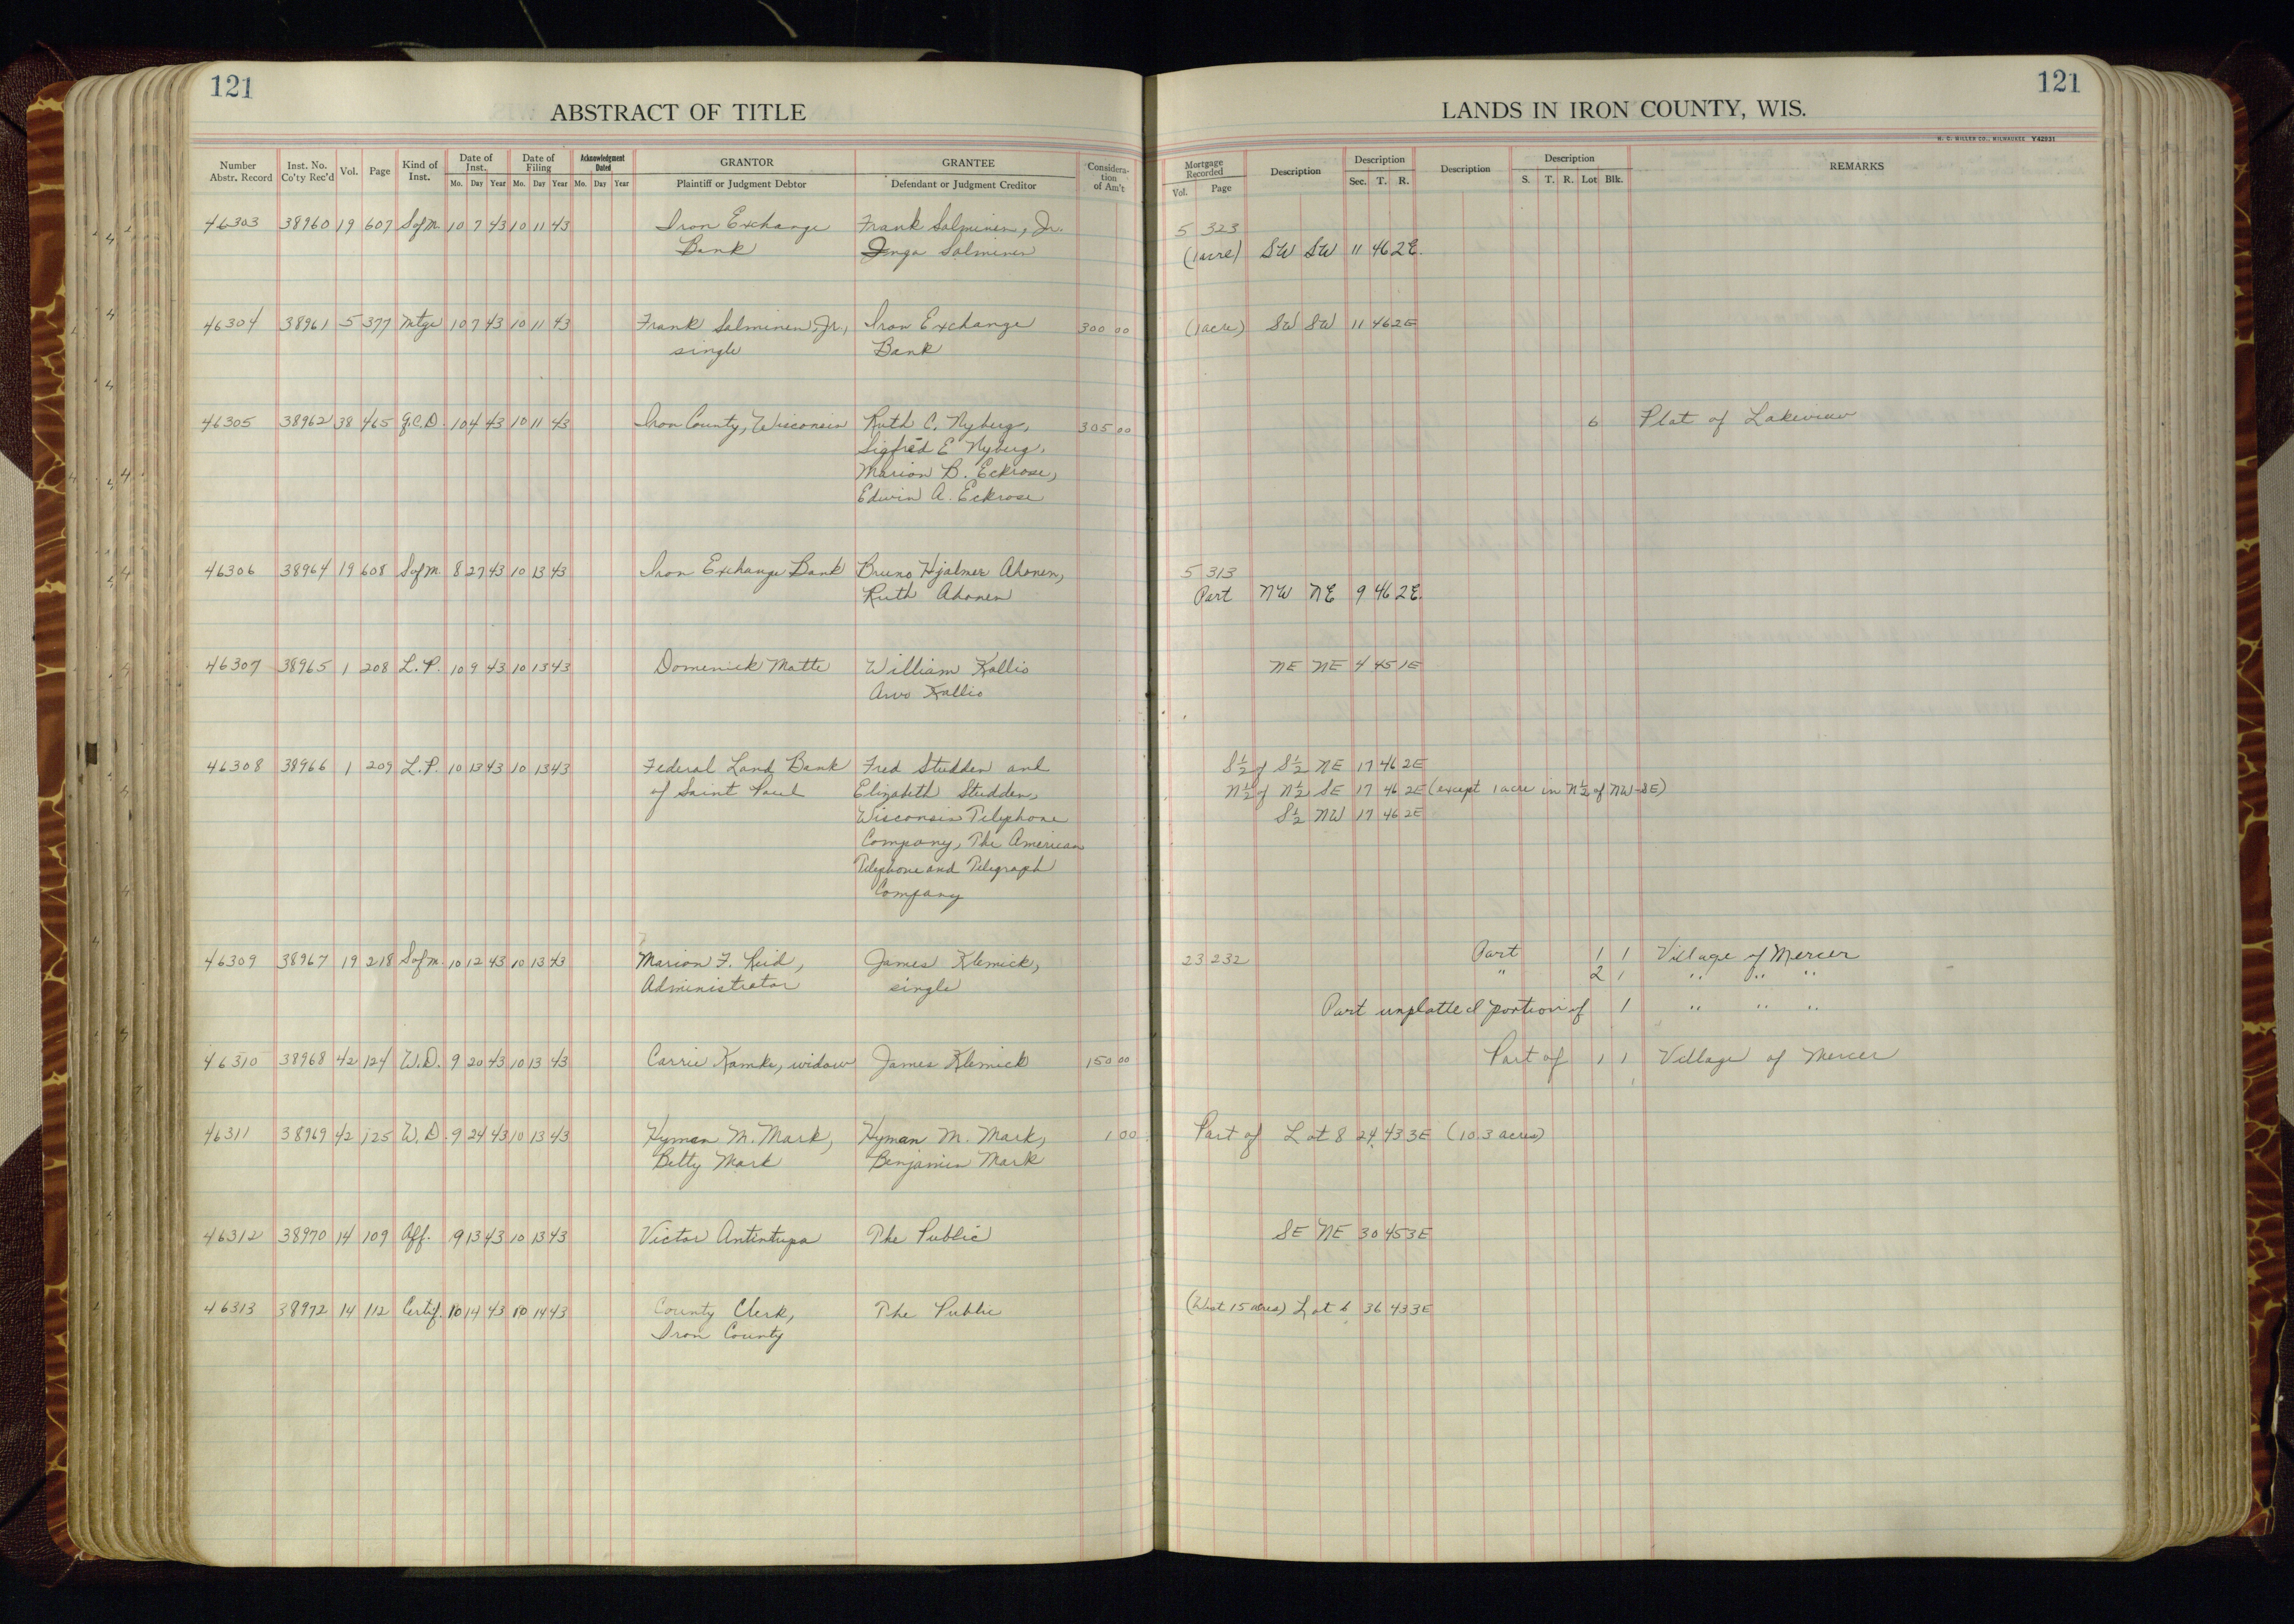 121
121
ABSTRACT OF TITLE
LANDS IN IRON COUNTY, WIS.
H. C. MILLER CO., MILWAUKEE Y42931
Number Abstr. Record | Inst. No. Co'ty Rec'd | Vol. | Page | Kind of Inst. | Date of Inst. Mo. Day Year | Date of Filing Mo. Day Year | Acknowledgment Dated Mo. Day Year | GRANTOR Plaintiff or Judgment Debtor | GRANTEE Defendant or Judgment Creditor | Consideration of Am't | Mortgage Recorded Vol. Page | Description | Description Sec. T. R. | Description | Description S. T. R. Lot Blk. | REMARKS
46303 38960 19 607 S of M. 10 7 43 10 11 43 Iron Exchange Frank Salminen, Jr. 5 323
Bank Inga Salminen (1 acre) SW SW 11 46 2E.
46304 38961 5 377 Mtge 10 7 43 10 11 43 Frank Salminen, Jr., Iron Exchange 300 00 (1 acre) SW SW 11 46 2E
single Bank
46305 38962 38 465 Q.C.D. 10 4 43 10 11 43 Iron County, Wisconsin Ruth C. Nyberg, 305 00 6 Plat of Lakeview
Sigfred E Nyberg,
Marion B. Eckrose,
Edwin A. Eckrose
46306 38964 19 608 S of M. 8 27 43 10 13 43 Iron Exchange Bank Bruno Hjalmer Ahonen, 5 313
Ruth Ahonen Part NW NE 9 46 2E.
46307 38965 1 208 L.P. 10 9 43 10 13 43 Domenick Matte William Kallio NE NE 4 45 1E
Arvo Kallio
46308 38966 1 209 L.P. 10 13 43 10 13 43 Federal Land Bank Fred Studden and S½ of S½ NE 17 46 2E
of Saint Paul Elizabeth Studden, N½ of N½ SE 17 46 2E (except 1 acre in N½ of NW-SE)
Wisconsin Telephone S½ NW 17 46 2E
Company, The American
Telephone and Telegraph
Company
46309 38967 19 218 S of M. 10 12 43 10 13 43 Marion F. Reid, James Klemick, 23 232 Part 1 1 Village of Mercer
Administrator single " 2 1 " " "
Part unplatted portion of 1 " " "
46310 38968 42 124 W.D. 9 20 43 10 13 43 Carrie Kamke, widow James Klemick 150 00 Part of 1 1 Village of Mercer
46311 38969 42 125 W.D. 9 24 43 10 13 43 Hyman M. Mark, Hyman M. Mark, 1 00 Part of Lot 8 24 43 3E (10.3 acres)
Betty Mark Benjamin Mark
46312 38970 14 109 Aff. 9 13 43 10 13 43 Victor Antintupa The Public SE NE 30 45 3E
46313 38972 14 112 Certif. 10 14 43 10 14 43 County Clerk, The Public (West 15 acres) Lot 6 36 43 3E
Iron County